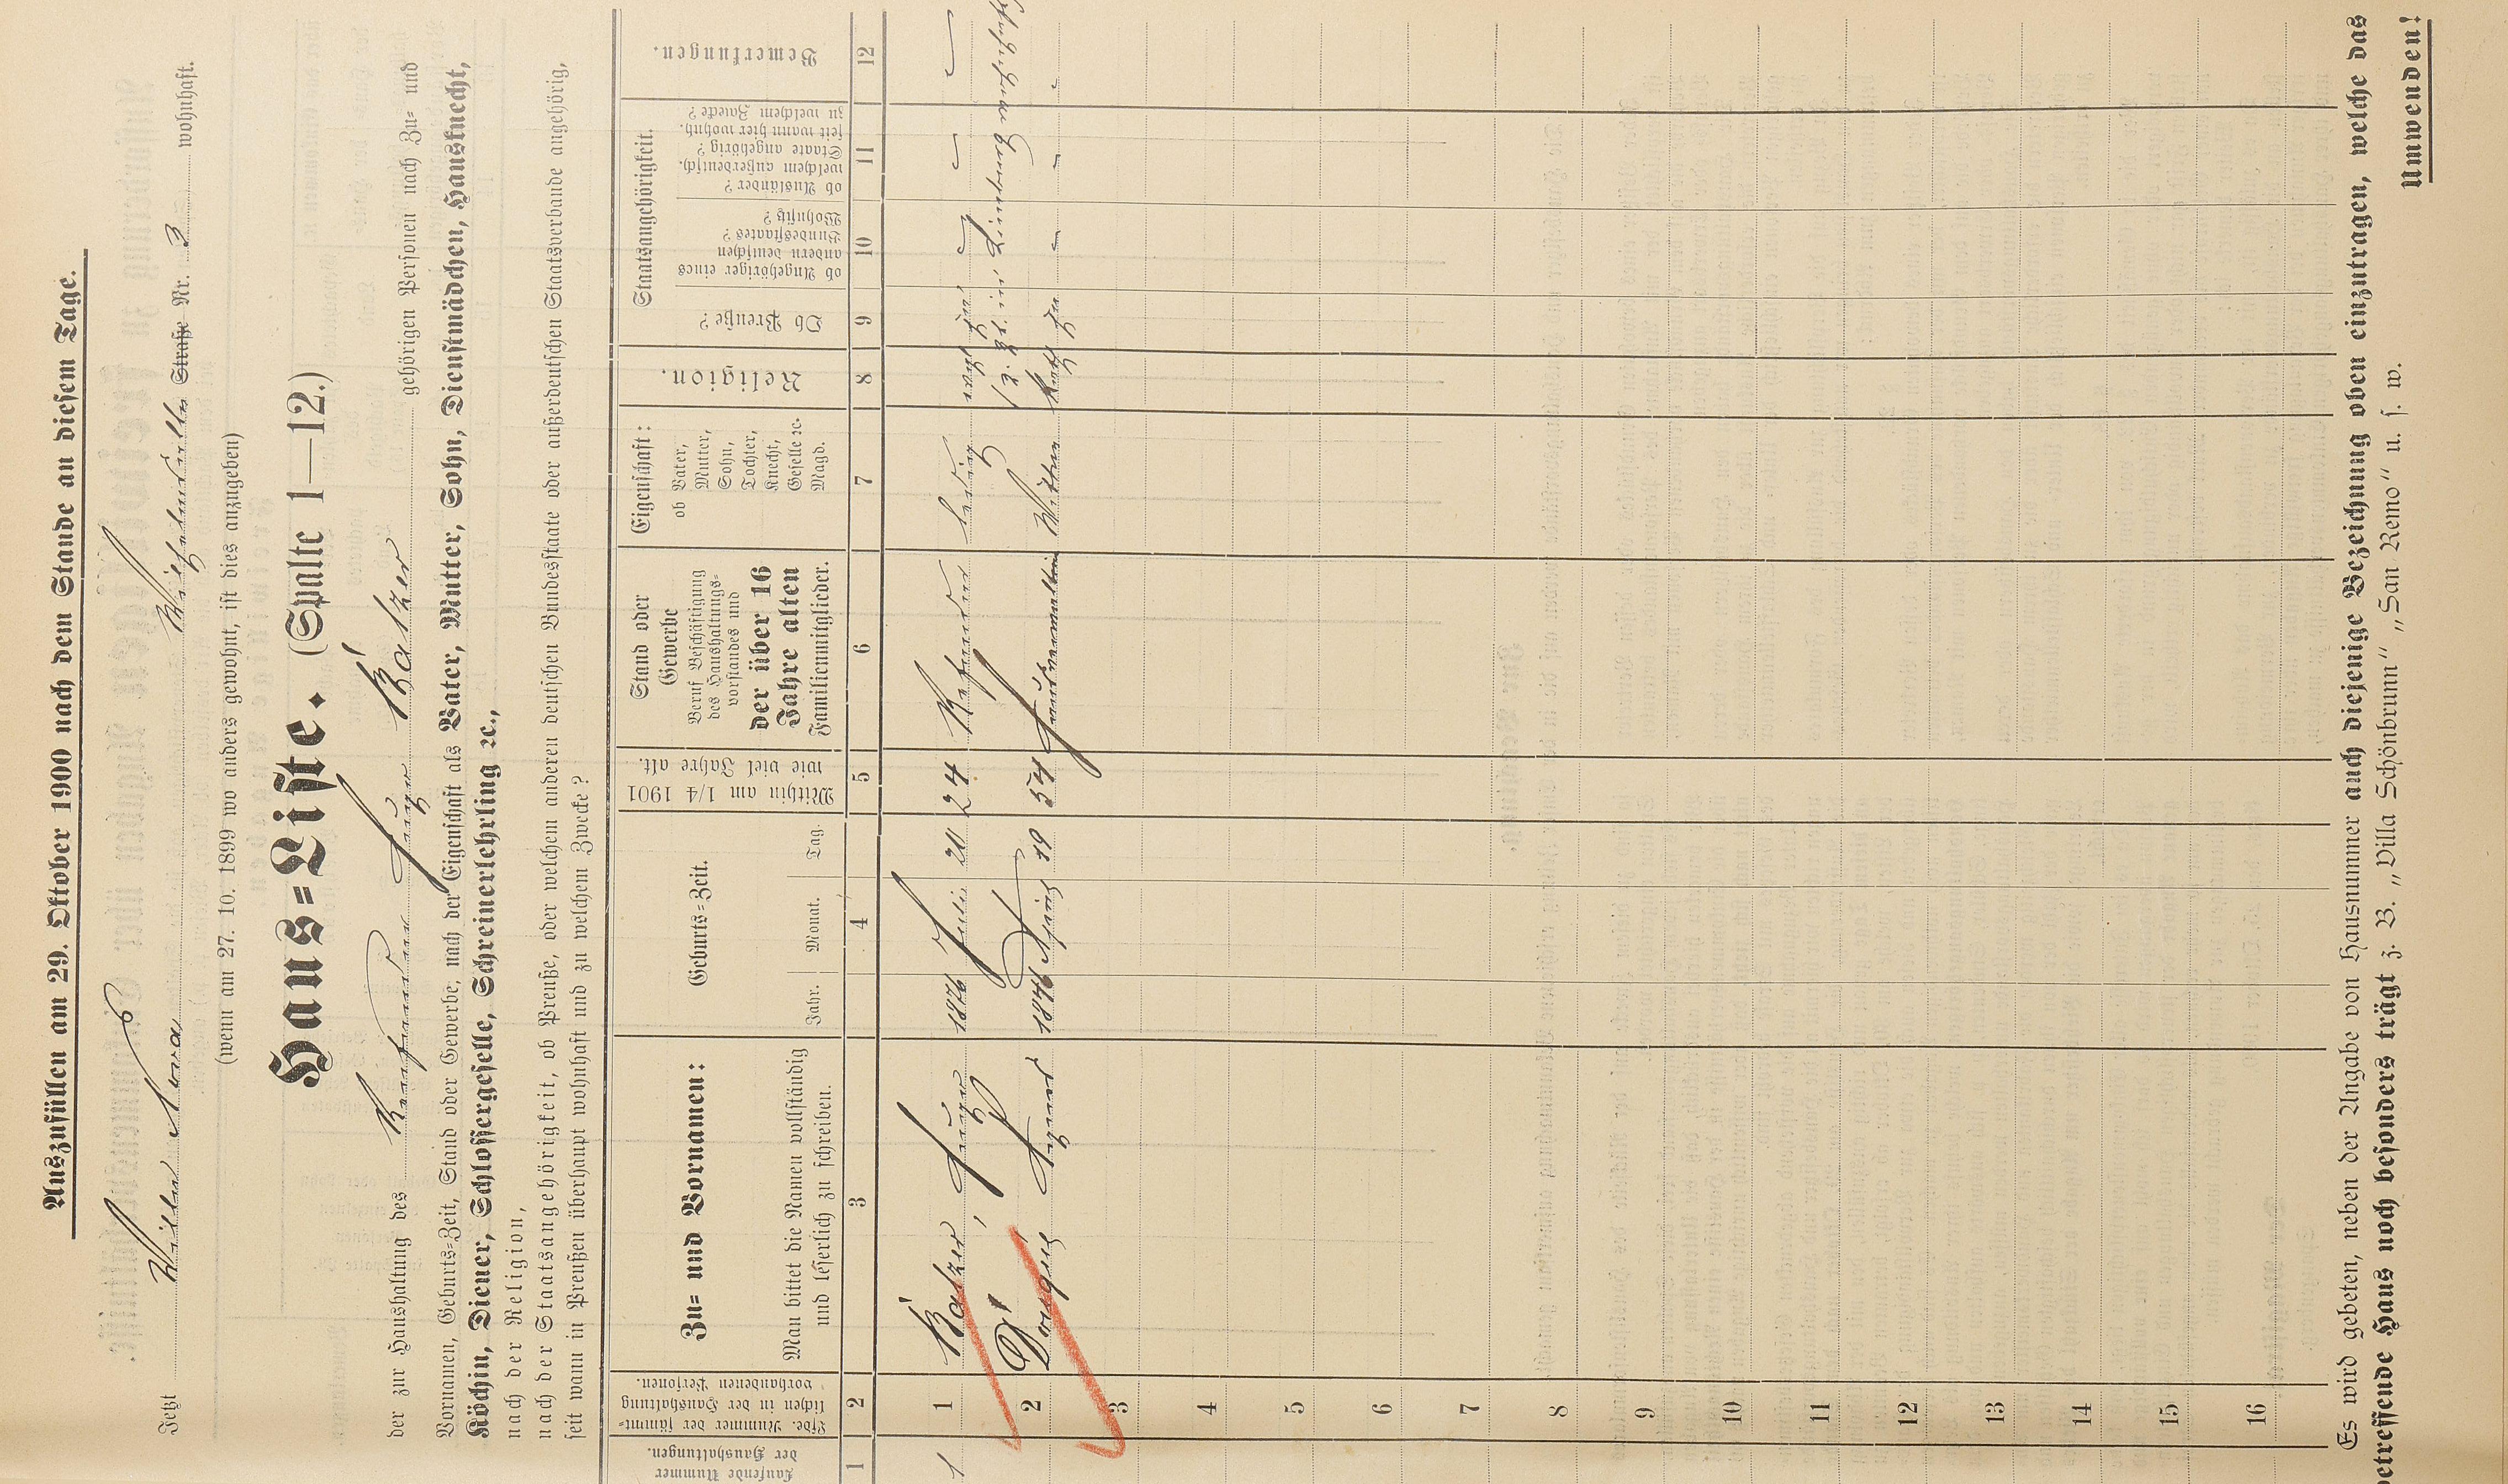 Auszufüllen am 29. Oktober 1900 nach dem Stande an diesem Tage.
Jetzt Villa Nora Straße Nr. 3 wohnhaft.
(wenn am 27. 10. 1899 wo anders gewohnt, ist dies anzugeben)
Haus-Liste. (Spalte 1—12.)
der zur Haushaltung des Balzer gehörigen Personen nach Zu- und
Vornamen, Geburts-Zeit, Stand oder Gewerbe, nach der Eigenschaft als Vater, Mutter, Sohn, Dienstmädchen, Hausknecht,
Köchin, Diener, Schlossergeselle, Schreinerlehrling ꝛc.,
nach der Religion,
nach der Staatsangehörigkeit, ob Preuße, oder welchem anderen deutschen Bundesstaate oder außerdeutschen Staatsverbande angehörig,
seit wann in Preußen überhaupt wohnhaft und zu welchem Zwecke?
Laufende Nummer der Haushaltungen.
Lfde. Nummer der sämmtlichen in der Haushaltung vorhandenen Personen.
Zu- und Vornamen:
Man bittet die Namen vollständig und leserlich zu schreiben.
Geburts-Zeit.
Jahr. Monat. Tag.
Mithin am 1/4 1901 wie viel Jahre alt.
Stand oder Gewerbe
Beruf Beschäftigung des Haushaltungsvorstandes und
der über 16 Jahre alten
Familienmitglieder.
Eigenschaft:
ob Vater, Mutter, Sohn, Tochter, Knecht, Geselle ꝛc. Magd.
Religion.
Staatsangehörigkeit.
Ob Preuße?
ob Angehöriger eines andern deutschen Bundesstaates? Wohnsitz?
ob Ausländer? welchem außerdeutsch. Staate angehörig? seit wann hier wohnh. zu welchem Zwecke?
Bemerkungen.
1 2 3 4 5 6 7 8 9 10 11 12
1 1 Balzer, 1876 Juli 20 24 ledig
2 1846 19 54 Kath
3
4
5
6
7
8
9
10
11
12
13
14
15
16
Es wird gebeten, neben der Angabe von Hausnummer auch diejenige Bezeichnung oben einzutragen, welche das
betreffende Haus noch besonders trägt z. B. „Villa Schönbrunn" „San Remo" u. s. w.
Umwenden!